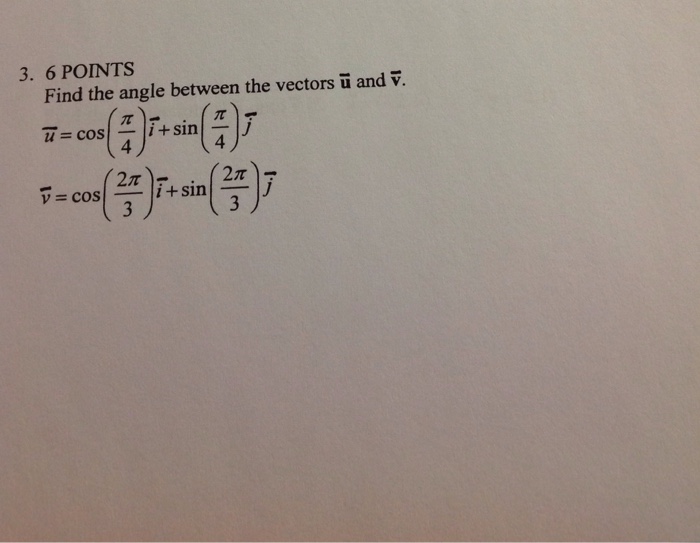 3. 6 POINTS
Find the angle between the vectors u̅ and v̅.
u̅ = cos(π/4) i̅ + sin(π/4) j̅
v̅ = cos(2π/3) i̅ + sin(2π/3) j̅